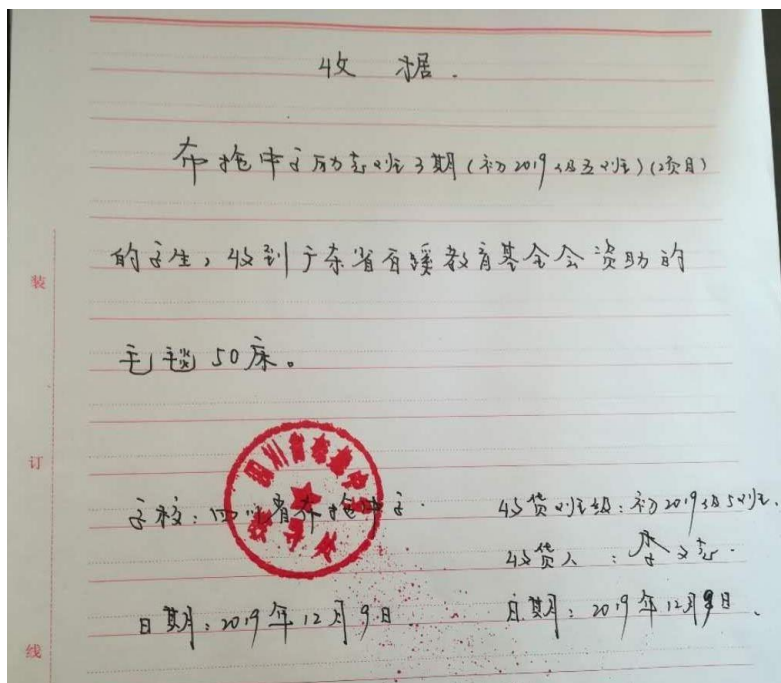 收 据.
布拖中学励志班3期(初2019级五班)(项目)
的学生,收到广东省百蹊教育基金会资助的
毛毯50床。
学校:四川省布拖中学. 收货班级:初2019级5班.
收货人:李文志.
日期:2019年12月9日 日期:2019年12月9日.
装
订
线